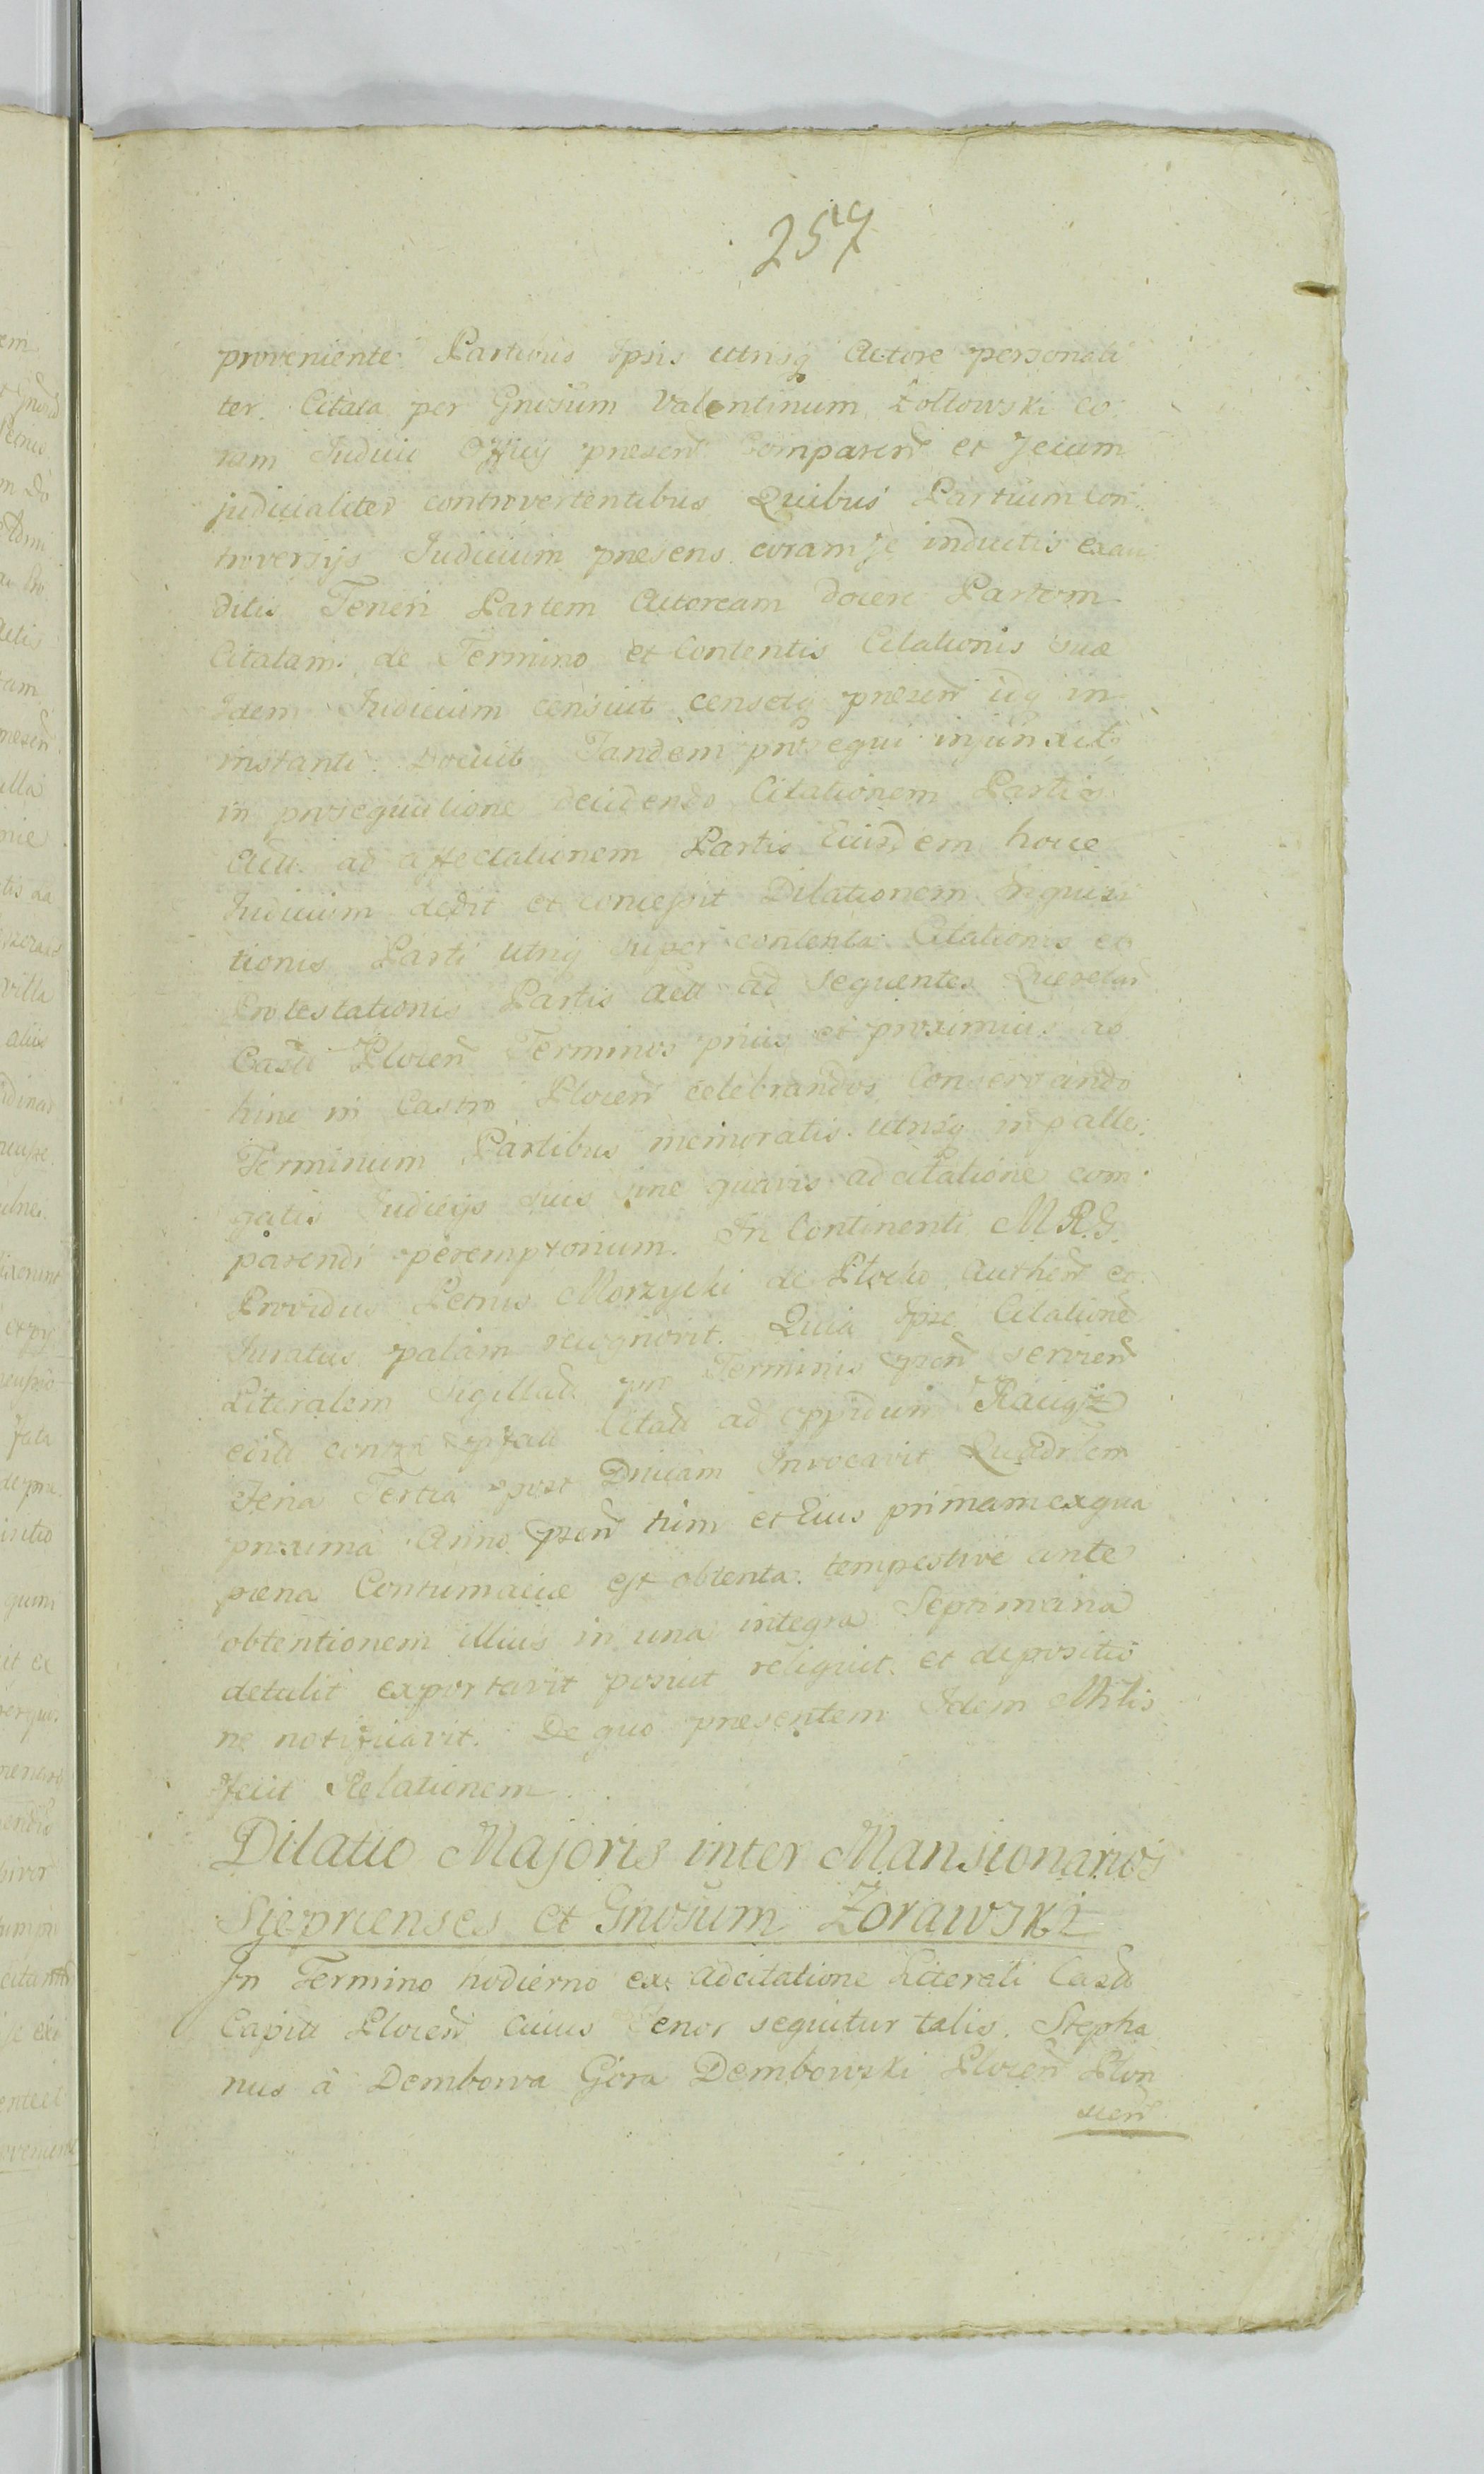 257
proveniente Partibus Ipsis utrisq Actore personali
ter. Citata per Gnosum Valentinum Żołtowski co
ram Judicio Officij presen Comparen et Secum
judicialiter controvertentibus Quibus Partium Con
troversijs Judicium presens coram se inductis exau
ditis Teneri Partem Actoream docere Partem
Citatam de Termino et Contentis Citationis suæ
Idem Judicium censuit censetq presen idq in
instanti Docuit Tandem prosequi injunxit
in prosequutione decidendo Citationem Partis
Act. ad affectationem Partis Eiusdem hocce
Judicium dedit et concessit Dilationem Inquisi
tionis Parti utriq super contenta Citationis et
Protestationis Partis Act ad sequentes Querelar
Castr Plocen Terminos prius et proximius ab
hinc in Castro Plocen celebrandos Conservando
Terminum Partibus memoratis utrisq in palle
gatis Judicijs suis sine quavis adcitatione com
parendi peremptorium. In Continenti M.R.G.
Providus Petrus Morzycki de Plocko Authen et
Juratus palam recognovit. Quia Ipse Citatione
Literalem Sigillad pro Terminis pren servien
edit contra pfatt Citatt ad oppidum Raciąż
Feria Tertia post Dnicam Invocavit Quadrlem
proxima Anno pren tum et Eius primam ex qua
pæna Contumaciæ est obtenta tempestive ante
obtentionem illius in una integra Septimana
detulit exportavit posuit reliquit et depositio
ne notificavit. De quo presentem Idem Mnlis
fecit Relationem.
Dilatio Majoris inter Mansionarios
Sieprcenses et Gnosum Żorawski
In Termino hodierno ex Adcitatione Literali Castr
Capitt Plocen Cuius Tenor sequitur talis. Stepha
nus à Dembowa Góra Dembowski Plocen Płon
scen